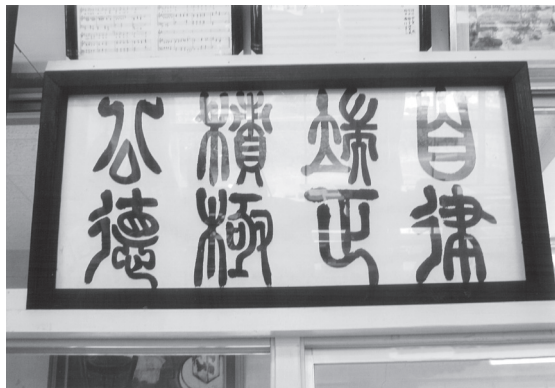 自律
端正
積極
公德